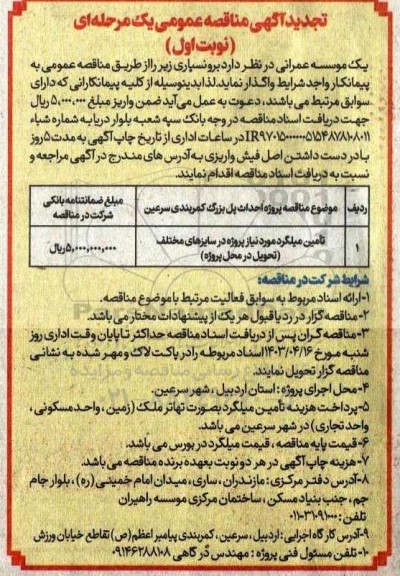 تجدید آگهی مناقصه عمومی یک مرحله‌ای
(نوبت اول)
یک موسسه عمرانی در نظر دارد برونسپاری زیر را از طریق مناقصه عمومی به
پیمانکار واجد شرایط واگذار نماید. لذا بدینوسیله از کلیه پیمانکارانی که دارای
سوابق مرتبط می باشند، دعوت به عمل می‌آید ضمن واریز مبلغ ۵,۰۰۰,۰۰۰ ریال
جهت دریافت اسناد مناقصه در وجه بانک سپه شعبه بلوار دریا به شماره شباء
در ساعات اداری از تاریخ چاپ آگهی به مدت ۵ روز
با در دست داشتن اصل فیش واریزی به آدرس های مندرج در آگهی مراجعه و
نسبت به دریافت اسناد مناقصه اقدام نمایند.
ردیف موضوع مناقصه پروژه احداث پل بزرگ کمربندی سرعین مبلغ ضمانتنامه بانکی
شرکت در مناقصه
۱ تأمین میلگرد مورد نیاز پروژه در سایزهای مختلف ۵,۰۰۰,۰۰۰,۰۰۰ ریال
(تحویل در محل پروژه)
شرایط شرکت در مناقصه:
۱-ارائه اسناد مربوط به سوابق فعالیت مرتبط با موضوع مناقصه.
۲-مناقصه گزار در رد یا قبول هر یک از پیشنهادات مختار می باشد.
۳-مناقصه گران پس از دریافت اسناد مناقصه حداکثر تا پایان وقت اداری روز
شنبه مورخ ۱۴۰۳/۰۴/۱۶ اسناد مربوطه را در پاکت لاک و مهر شده به نشانی
مناقصه گزار تحویل نمایند.
۴-محل اجرای پروژه : استان اردبیل، شهر سرعین.
۵-پرداخت هزینه تأمین میلگرد بصورت تهاتر ملک (زمین ، واحد مسکونی ،
واحد تجاری) در شهر سرعین می باشد.
۶-قیمت پایه مناقصه ، قیمت میلگرد در بورس می باشد.
۷-هزینه چاپ آگهی در هر دو نوبت بعهده برنده مناقصه می باشد.
۸-آدرس دفتر مرکزی : مازندران ، ساری، میدان امام خمینی (ره) ، بلوار جام
جم ، جنب بنیاد مسکن ، ساختمان مرکزی موسسه راهیران
تلفن : ۰۱۱-۳۱۰۹۱۰۰۰
۹-آدرس کارگاه اجرایی : اردبیل، سرعین، کمربندی پیامبر اعظم (ص) تقاطع خیابان ورزش
۱۰-تلفن مسئول فنی پروژه : مهندس دُرگاهی ۰۹۱۴۶۲۸۸۱۰۸